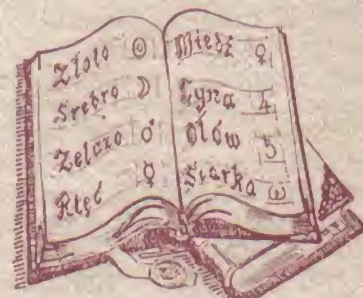 Złoto ☉
Srebro ☽
Żelazo ♂
Rtęć ☿
Miedź ♀
Cyna 4
Ołów 5
Siarka ω